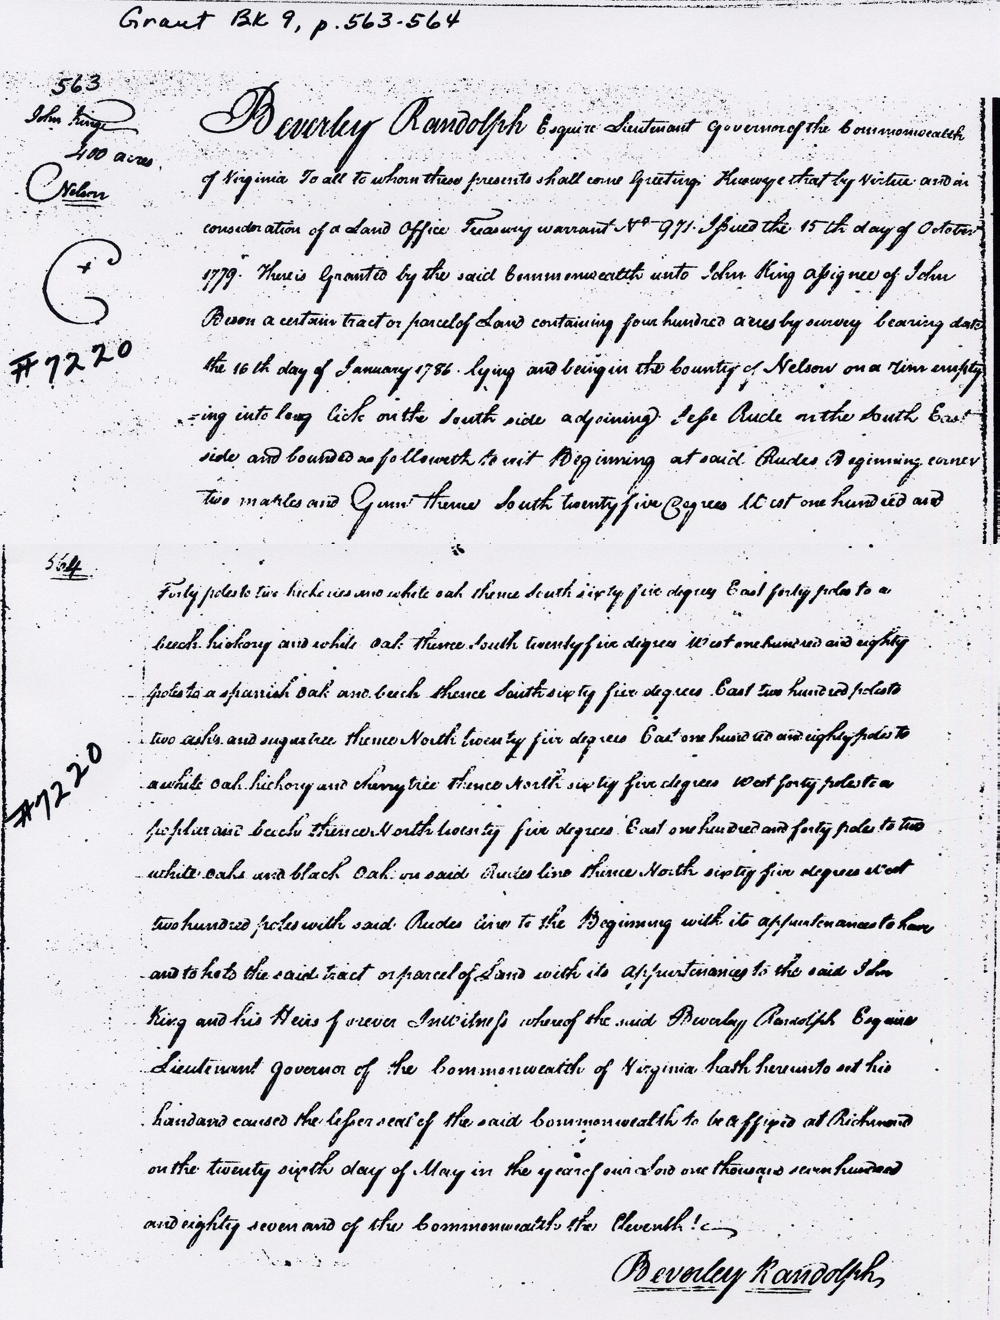 Grant Bk 9, p. 563-564
563
John King
400 acres
Nelson
#7220
Beverley Randolph Esquire Lieutenant Governor of the Commonwealth
of Virginia To all to whom these presents shall come Greeting Know ye that by Virtue and in
consideration of a Land Office Treasury warrant No 971 Issued the 15th day of October
1779 There is Granted by the said Commonwealth unto John King assignee of John
a certain tract or parcel of Land containing four hundred acres by survey bearing date
the 16th day of January 1786 lying and being in the County of Nelson on a empty
=ing into long lick on the south side adjoining Jesse Rude on the South East
side and bounded as followeth to wit Beginning at said Rudes Beginning corner
two maples and Gum thence South twenty five Degrees West one hundred and
564
Forty poles to two hickories and white oak thence South sixty five degrees East forty poles to a
beech hickory and white oak thence South twenty five degrees West one hundred and eighty
poles to a spanish oak and beech thence South sixty five degrees East two hundred poles to
two ashs and sugartree thence North twenty five degrees East one hundred and eighty poles to
a white oak hickory and cherrytree thence North sixty five degrees West forty poles to a
poplar and beech thence North twenty five degrees East one hundred and forty poles to two
white oaks and black oak on said Rudes line thence North sixty five degrees West
two hundred poles with said Rudes line to the Beginning with its appurtenances to have
and to hold the said tract or parcel of Land with its appurtenances to the said John
King and his Heirs forever In Witness whereof the said Beverley Randolph Esquire
Lieutenant Governor of the Commonwealth of Virginia hath hereunto set his
hand and caused the lesser seal of the said Commonwealth to be affixed at Richmond
on the twenty sixth day of May in the year of our Lord one thousand seven hundred
and eighty seven and of the Commonwealth the Eleventh!
#7220
Beverley Randolph